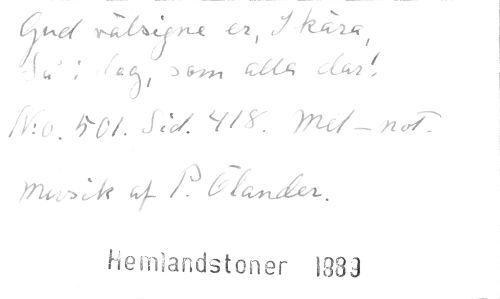 Gud välsigne er, I kära,
Så i dag, som alla dar!
N:o. 501. Sid. 418. Mel-not.
Musik af P. Ölander.
Hemlandstoner 1889